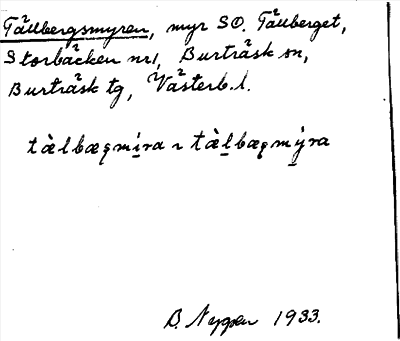 Tällbergsmyren, myr SO. Tällberget,
Storbäcken nr1, Burträsk sn,
Burträsk tg, Västerb. l.
tàlbæqmíra ~ tàlbæqmýra
B. Nygren 1933.